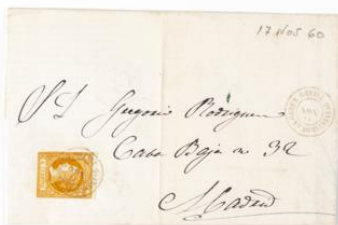 17 Nov 60
S D Gregorio Rodriguez
Caba Baja n 32
Madrid